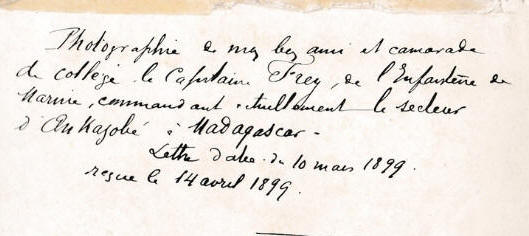 Photographie de mon bon ami et camarade
de collège le Capitaine Frey, de l'Infanterie de
Marine, commandant actuellement le secteur
d'Ankazobé à Madagascar -
Lettre datée du 10 mars 1899.
reçue le 14 avril 1899.